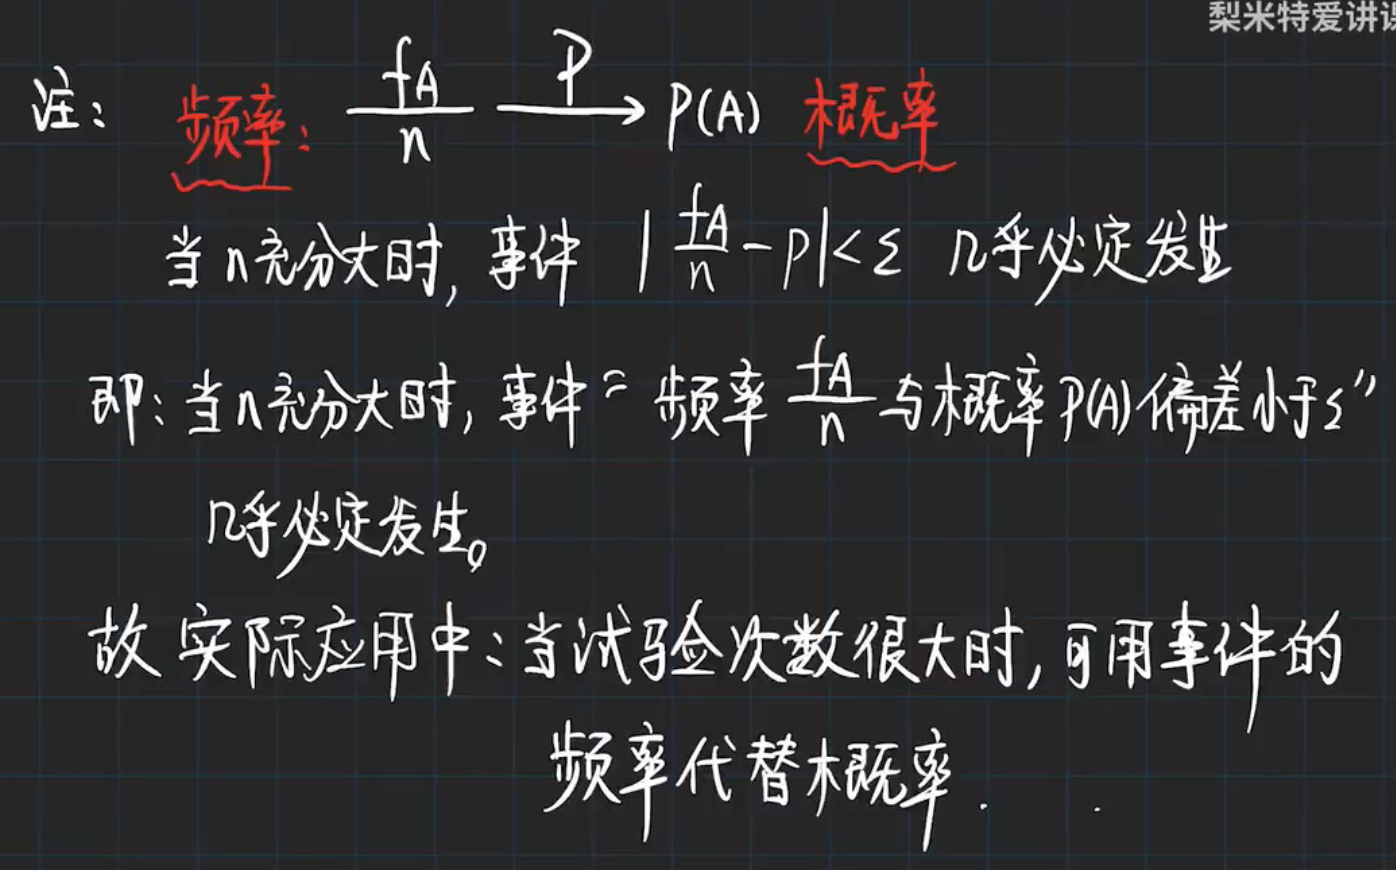 梨米特爱讲课
注: 频率: fA/n —P→ P(A) 概率
当n充分大时, 事件 |fA/n - p| < ε 几乎必定发生
即: 当n充分大时, 事件“频率 fA/n 与概率P(A)偏差小于ε”
几乎必定发生。
故实际应用中: 当试验次数很大时, 可用事件的
频率代替概率.